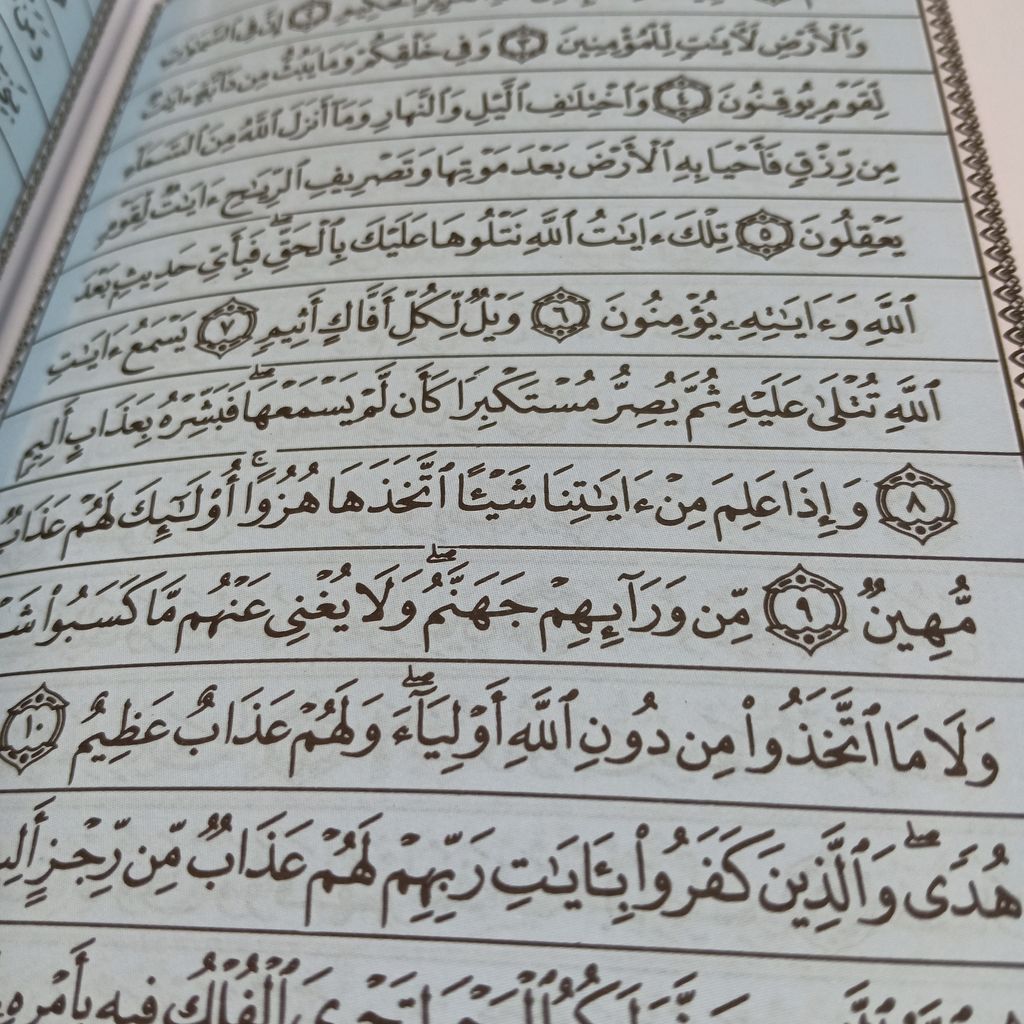 وَٱلْأَرْضِ لَـَٔايَـٰتٍ لِّلْمُؤْمِنِينَ ٣ وَفِى خَلْقِكُمْ وَمَا يَبُثُّ مِن دَآبَّةٍ ءَايَـٰتٌ
لِّقَوْمٍ يُوقِنُونَ ٤ وَٱخْتِلَـٰفِ ٱلَّيْلِ وَٱلنَّهَارِ وَمَآ أَنزَلَ ٱللَّهُ مِنَ ٱلسَّمَآءِ
مِن رِّزْقٍ فَأَحْيَا بِهِ ٱلْأَرْضَ بَعْدَ مَوْتِهَا وَتَصْرِيفِ ٱلرِّيَـٰحِ ءَايَـٰتٌ لِّقَوْمٍ
يَعْقِلُونَ ٥ تِلْكَ ءَايَـٰتُ ٱللَّهِ نَتْلُوهَا عَلَيْكَ بِٱلْحَقِّ ۖ فَبِأَىِّ حَدِيثٍۭ بَعْدَ
ٱللَّهِ وَءَايَـٰتِهِۦ يُؤْمِنُونَ ٦ وَيْلٌ لِّكُلِّ أَفَّاكٍ أَثِيمٍ ٧ يَسْمَعُ ءَايَـٰتِ
ٱللَّهِ تُتْلَىٰ عَلَيْهِ ثُمَّ يُصِرُّ مُسْتَكْبِرًا كَأَن لَّمْ يَسْمَعْهَا ۖ فَبَشِّرْهُ بِعَذَابٍ أَلِيمٍ
٨ وَإِذَا عَلِمَ مِنْ ءَايَـٰتِنَا شَيْـًٔا ٱتَّخَذَهَا هُزُوًا ۚ أُو۟لَـٰٓئِكَ لَهُمْ عَذَابٌ
مُّهِينٌ ٩ مِّن وَرَآئِهِمْ جَهَنَّمُ ۖ وَلَا يُغْنِى عَنْهُم مَّا كَسَبُوا۟
وَلَا مَا ٱتَّخَذُوا۟ مِن دُونِ ٱللَّهِ أَوْلِيَآءَ ۖ وَلَهُمْ عَذَابٌ عَظِيمٌ ١٠
هُدًى ۖ وَٱلَّذِينَ كَفَرُوا۟ بِـَٔايَـٰتِ رَبِّهِمْ لَهُمْ عَذَابٌ مِّن رِّجْزٍ